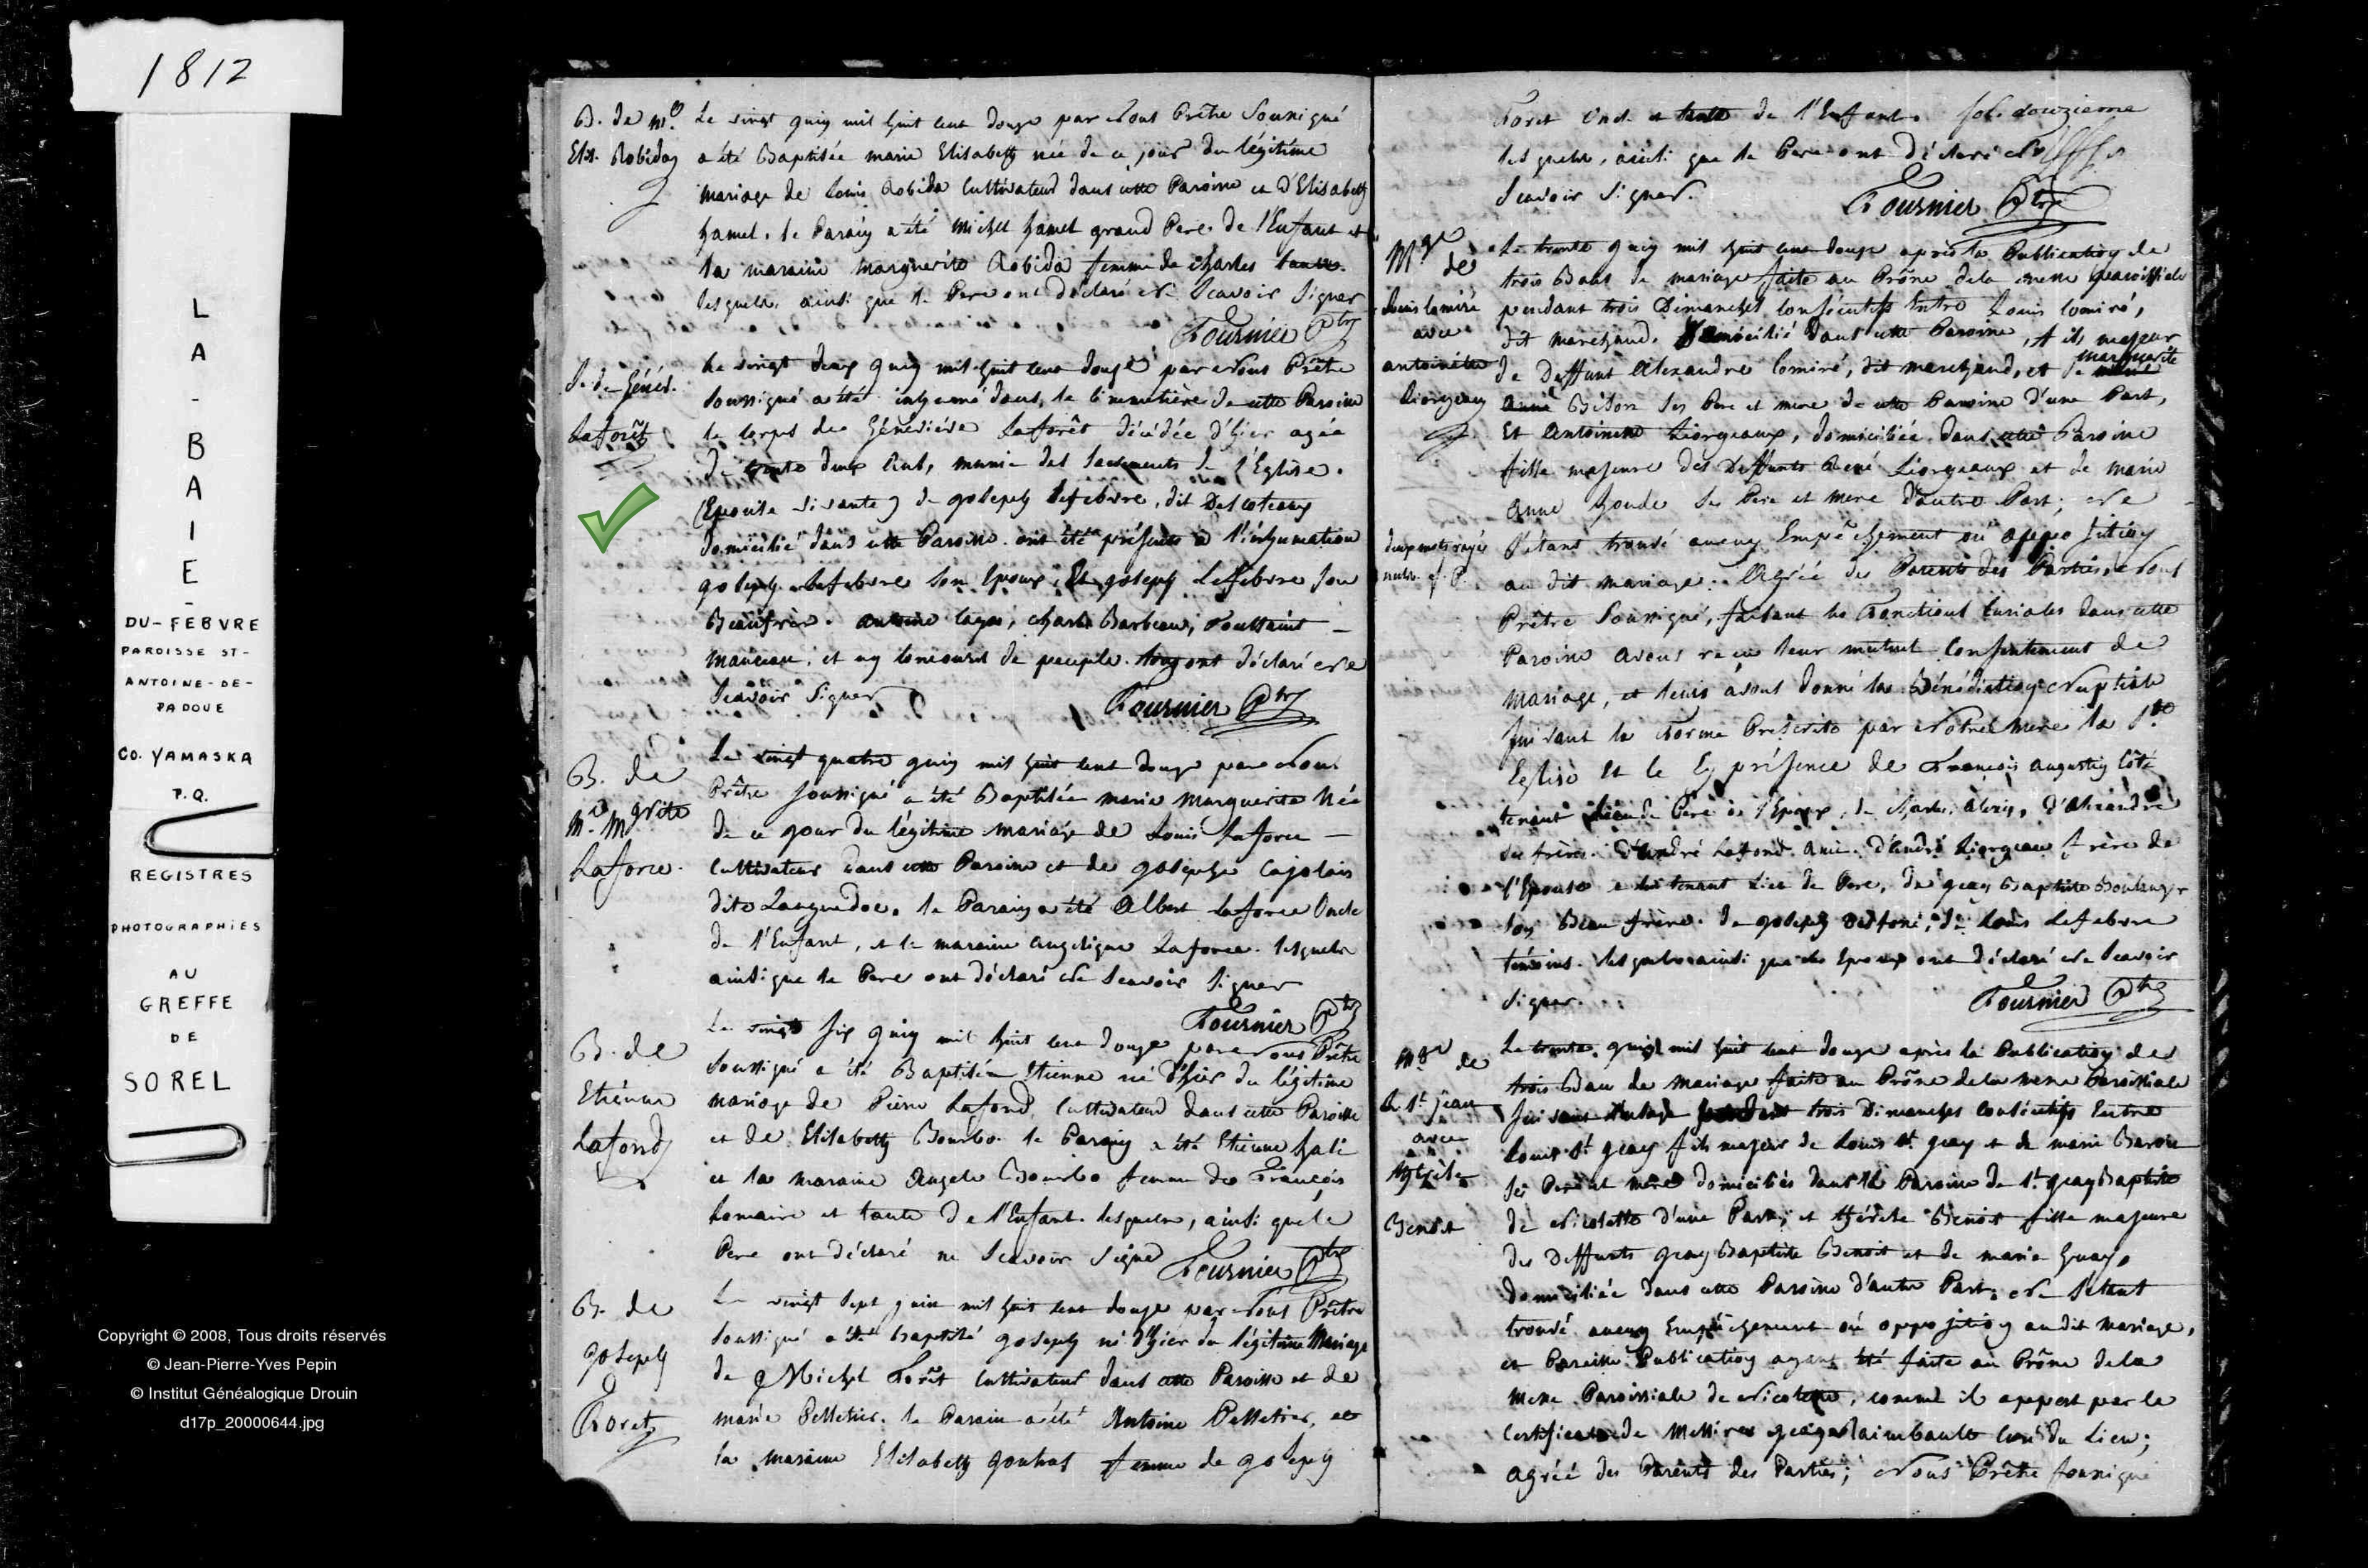 1812
LA-BAIE-
DU-FEBVRE
PAROISSE ST-
ANTOINE-DE-
PADOUE
CO. YAMASKA
P.Q.
REGISTRES
PHOTOGRAPHIÉS
AU
GREFFE
DE
SOREL
Copyright © 2008, Tous droits réservés
© Jean-Pierre-Yves Pepin
© Institut Généalogique Drouin
d17p_20000644.jpg
B. de
Elis. Robidas
Le vingt juin mil huit cent douze par Nous Prêtre Soussigné
a été Baptisée marie Elisabeth née de ce jour du légitime
mariage de Louis Robida Cultivateur dans cette Paroisse et d'Elisabeth
hamel. le Parain a été Michel hamel grand Pere de l'Enfant et
la maraine marguerite Robida femme de charles
lesquels, ainsi que le Pere ont déclaré Ne Scavoir Signer
Fournier Ptre
S. de Génev.
Laforêt
Le vingt deux juin mil huit cent douze par Nous Prêtre
Soussigné a été inhumé dans le cimmetière de cette Paroisse
le corps de Géneviéve Laforêt décédée d'hier agée
de trente deux Ans, munie des Sacrements de l'Eglise.
(Epouse vivante) de Joseph Lefebvre, dit Descoteaux
domicilié dans cette Paroisse. ont été présents à l'inhumation
Joseph Lefebvre Son Epoux, Et Joseph Lefebvre Son
Beaufrère. Antoine, charles Barbeau, Toussaint
manceau, et un concours de peuple. tous ont déclaré Ne
Scavoir Signer
Fournier Ptre
B. de
Me. Mgrite
Laforce.
Le vingt quatre juin mil huit cent douze par Nous
Prêtre Soussigné a été Baptisée marie Marguerite Née
de ce jour du légitime mariage de Louis Laforce
Cultivateur dans cette Paroisse et de Josephe Cajolais
dite Languedoc. le Parain a été Albert Laforce Oncle
de l'Enfant, et la maraine angelique Laforce. lesquels
ainsi que le Pere ont déclaré Ne Scavoir Signer
Fournier Ptre
B. de
Etiénne
Lafond
Le vingt Six juin mil huit cent douze par Nous Prêtre
Soussigné a été Baptisé Etienne né d'hier du légitime
mariage de Pierre Lafond, Cultivateur dans cette Paroisse
et de Elisabeth Bourbo. le Parain a été Etienne
et la maraine Angele Bourbo femme de François
Lemaire et tante de l'Enfant. lesquels, ainsi que le
Pere ont déclaré ne Scavoir Signé Fournier Ptre
B. de
Joseph
Foret
Le vingt Sept juin mil huit cent douze par Nous Prêtre
Soussigné a été baptisé Joseph né d'hier du légitime Mariage
de Michel Forêt Cultivateur dans cette Paroisse et de
marie Pelletier. le Parain a été Antoine Pelletier, et
la maraine Elisabeth femme de Joseph
Foret Oncle et tante de l'Enfant. fol. douzieme
lesquels, ainsi que le Pere ont déclaré Ne
Scavoir Signer.
Fournier Ptre
Mge de
Louis lomiré
avec
antoinette
Liorgeaux
deux mots rayés
Le trente juin mil huit cent douze après la Publication de
trois Bans de mariage faite au Prône de la messe paroissiale
pendant trois Dimanches consécutifs Entre Louis Lomiré,
dit marchand. Domicilié dans cette Paroisse, fils majeur
de Deffunt Alexandre Lomiré, dit marchand, et de marguerite
Anne ses Pere et mere de cette Paroisse d'une Part,
Et Antoinette Liorgeaux, domiciliée dans cette Paroisse
fille majeure des Deffunts René Liorgeaux et de marie
Anne houde Ses Pere et mere D'autre Part; Ne
S'étant trouvé aucun Empêchement ou opposition
au dit mariage. Agréé des Parents des Parties, Nous
Prêtre Soussigné, faisant les fonctions Curiales dans cette
Paroisse avons reçu leur mutuel Consentement de
mariage, et leurs avons donné la Bénédiction Nuptiale
suivant la Forme Prescrite par Notre mere la Ste
Eglise Et le En présence de François augustin Côté
tenant lieu de Pere à l'Epoux, de charles, alexis, d'Alexandre
ses frères. d'André Lafond ami. d'André Liorgeau frère de
l'Epouse et lui tenant Lieu de Pere, de Jean Baptiste Boulanger
Son Beau frère. de Joseph, de Louis Lefebvre
témoins. lesquels ainsi que les Epoux ont déclaré Ne Scavoir
Signer.
Fournier Ptre
Mge de
L. St. Jean
avec
Benoit
Le trente juin mil huit cent douze après la Publication de
trois Bans de mariage faite au Prône de la messe Paroissiale
pendant trois Dimanches Consécutifs Entre
Louis St. Jean fils majeur de Louis St. Jean et de marie Baron
Ses Pere et mere domiciliés dans la Paroisse de St. Jean Baptiste
de Nicolette d'une Part, et thérèse Benoit fille majeure
des Deffunts Jean Baptiste Benoit et de marie
domiciliée dans cette Paroisse d'autre Part. Ne S'étant
trouvé aucun Empêchement ou opposition au dit mariage,
et Pareille Publication ayant été faite au Prône de la
messe Paroissiale de Nicolette, comme il appert par le
Certificat de Messire Raimbault Curé du Lieu;
agréé des Parents des Parties; Nous Prêtre Soussigné